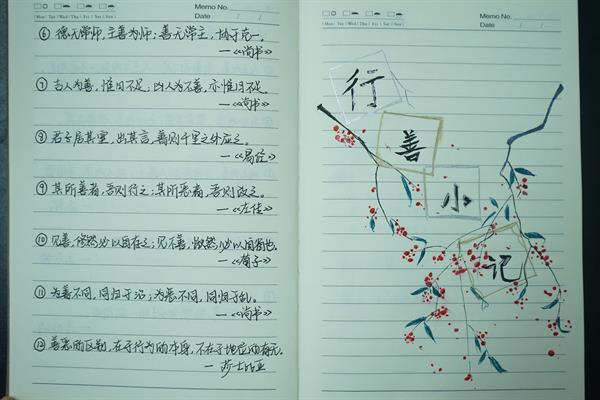 Memo No.
Mon / Tue / Wed / Thu / Fri / Sat / Sun
Date / /
⑥ 德无常师，主善为师；善无常主，协于克一。
—《尚书》
⑦ 吉人为善，惟日不足；凶人为不善，亦惟日不足。
—《尚书》
⑧ 君子居其室，出其言，善则千里之外应之。
—《易经》
⑨ 其所善者，吾则行之，其所恶者，吾则改之。
—《左传》
⑩ 见善，修然必以自存也；见不善，愀然必以自省也。
—《荀子》
⑪ 为善不同，同归于治；为恶不同，同归于乱。
—《尚书》
⑫ 善恶的区别，在于行为的本身，不在于地位的有无。
—莎士比亚
Memo No.
Mon / Tue / Wed / Thu / Fri / Sat / Sun
Date / /
行
善
小
记